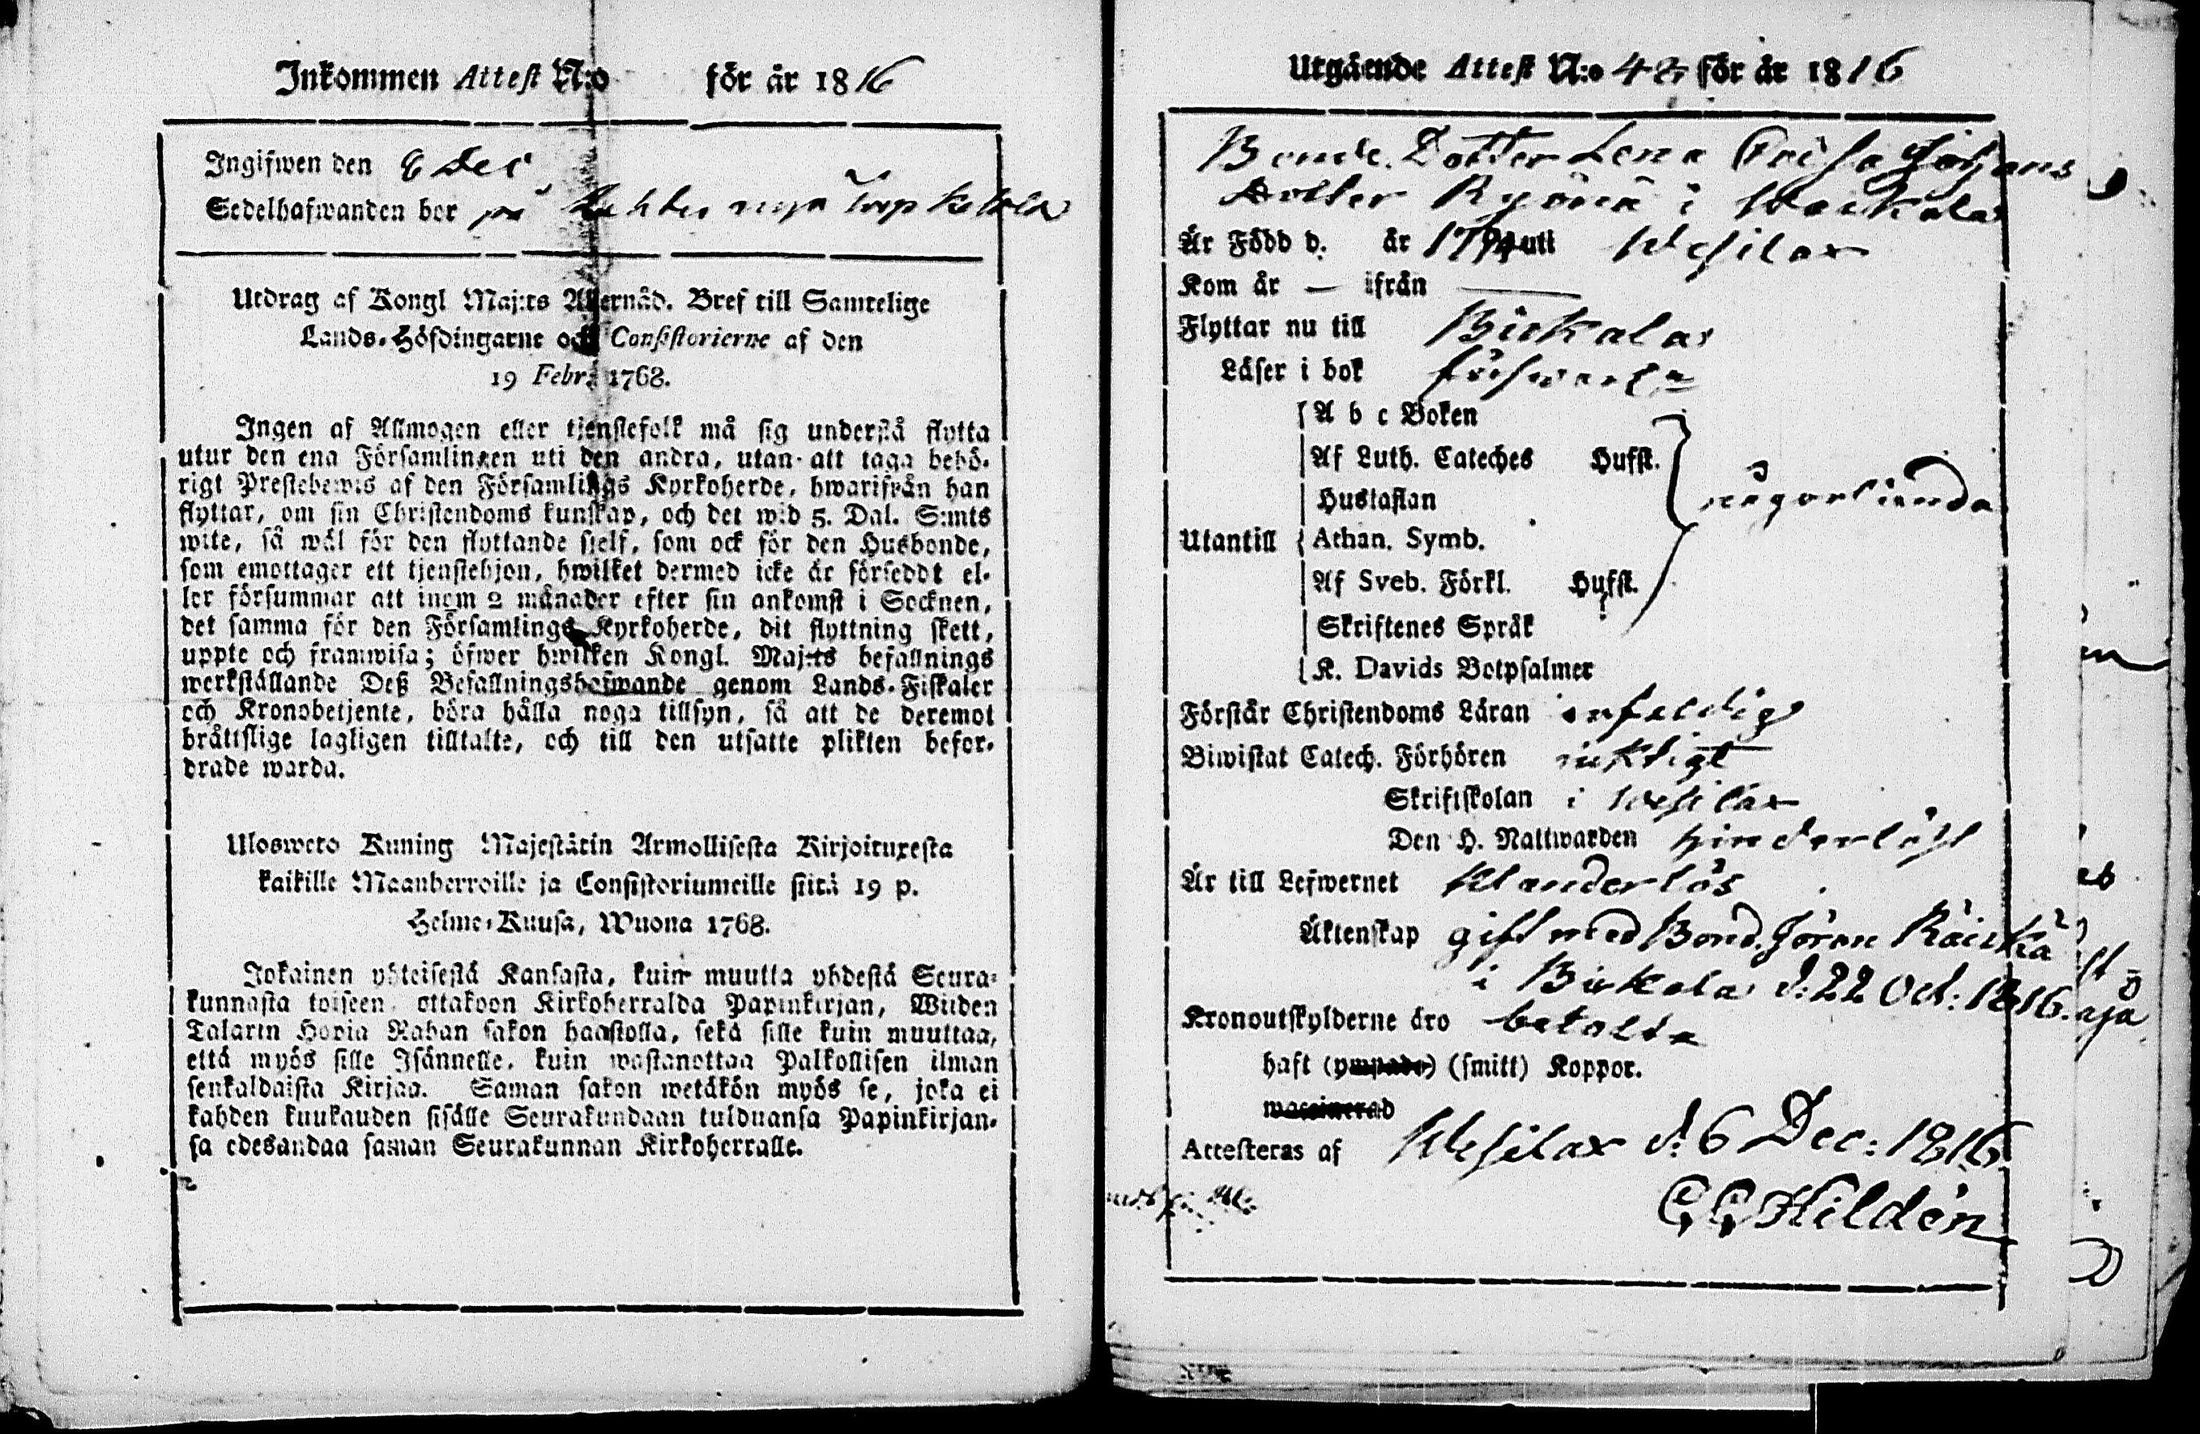 Inkommen Attest N:o för år 1816
Ingifwen den 8 Dec
Sedelhafwanden bor på
Utdrag af Kongl Maj:ts Allernåd. Bref till Samtelige
Lands-Höfdingarne och Consistorierne af den
19 Febr. 1768.
Ingen af Allmogen eller tjenstefolk må sig understå flytta
utur den ena Församlingen uti den andra, utan att taga behö-
rigt Prestebewis af den Församlings Kyrkoherde, hwarifrån han
flyttar, om sin Christendoms kunskap, och det wid 5. Dal. S:mts
wite, så wäl för den flyttande sjelf, som ock för den Husbonde,
som emottager ett tjenstehjon, hwilket dermed icke är försedt el-
ler försummar att inom 2 månader efter sin ankomst i Socknen,
det samma för den Församlings Kyrkoherde, dit flyttning skett,
uppte och framwisa; öfwer hwilken Kongl. Maj:ts befallnings
werkställande Deß Befallningshafwande genom Lands-Fiskaler
och Kronobetjente, böra hålla noga tillsyn, så att de deremot
bråttslige lagligen tilltalte, och till den utsatte plikten befor-
drade warda.
Ulosweto Kuning Majestätin Armollisesta Kirjoituxesta
kaikille Maanherroille ja Consistoriumeille siitä 19 p.
Helme-Kuusa, Wuona 1768.
Jokainen yhteisestä Kansasta, kuin muutta yhdestä Seura-
kunnasta toiseen, ottakoon Kirkoherralda Papinkirjan, Wiiden
Talarin Hopia Rahan sakon haastolla, sekä sille kuin muuttaa,
että myös sille Isännelle, kuin wastanottaa Palkollisen ilman
senkaldaista Kirjaa. Saman sakon wetäkön myös se, joka ei
kahden kuukauden sisälle Seurakundaan tulduansa Papinkirjan-
sa edesandaa saman Seurakunnan Kirkoherralle.
Utgående Attest N:o 48 för år 1816
Bonde Dotter Lena Caisa Johans
dotter Ryönä i
Är Född d. år 1794 uti Wesilax
Kom år — ifrån —
Flyttar nu till Birkala
Läser i bok förswarl.
A b c Boken
Af Luth. Cateches Hufst.
Hustaflan någorlunda
Utantill Athan. Symb.
Af Sveb. Förkl. Hufst.
Skriftenes Språk
K. Davids Botpsalmer
Förstår Christendoms Läran enfaldigt
Biwistat Catech. Förhören riktigt
Skriftskolan i Wesilax
Den H. Nattwarden hinderlöst
Är till Lefwernet klanderlös
Äktenskap gift med Bond. Jöran
i Birkala d: 22 Oct: 1816.
Kronoutskylderne äro betalda
haft (ympade) (smitt) Koppor.
waccinerad
Attesteras af Wesilax d: 6 Dec: 1816
C G Hildén